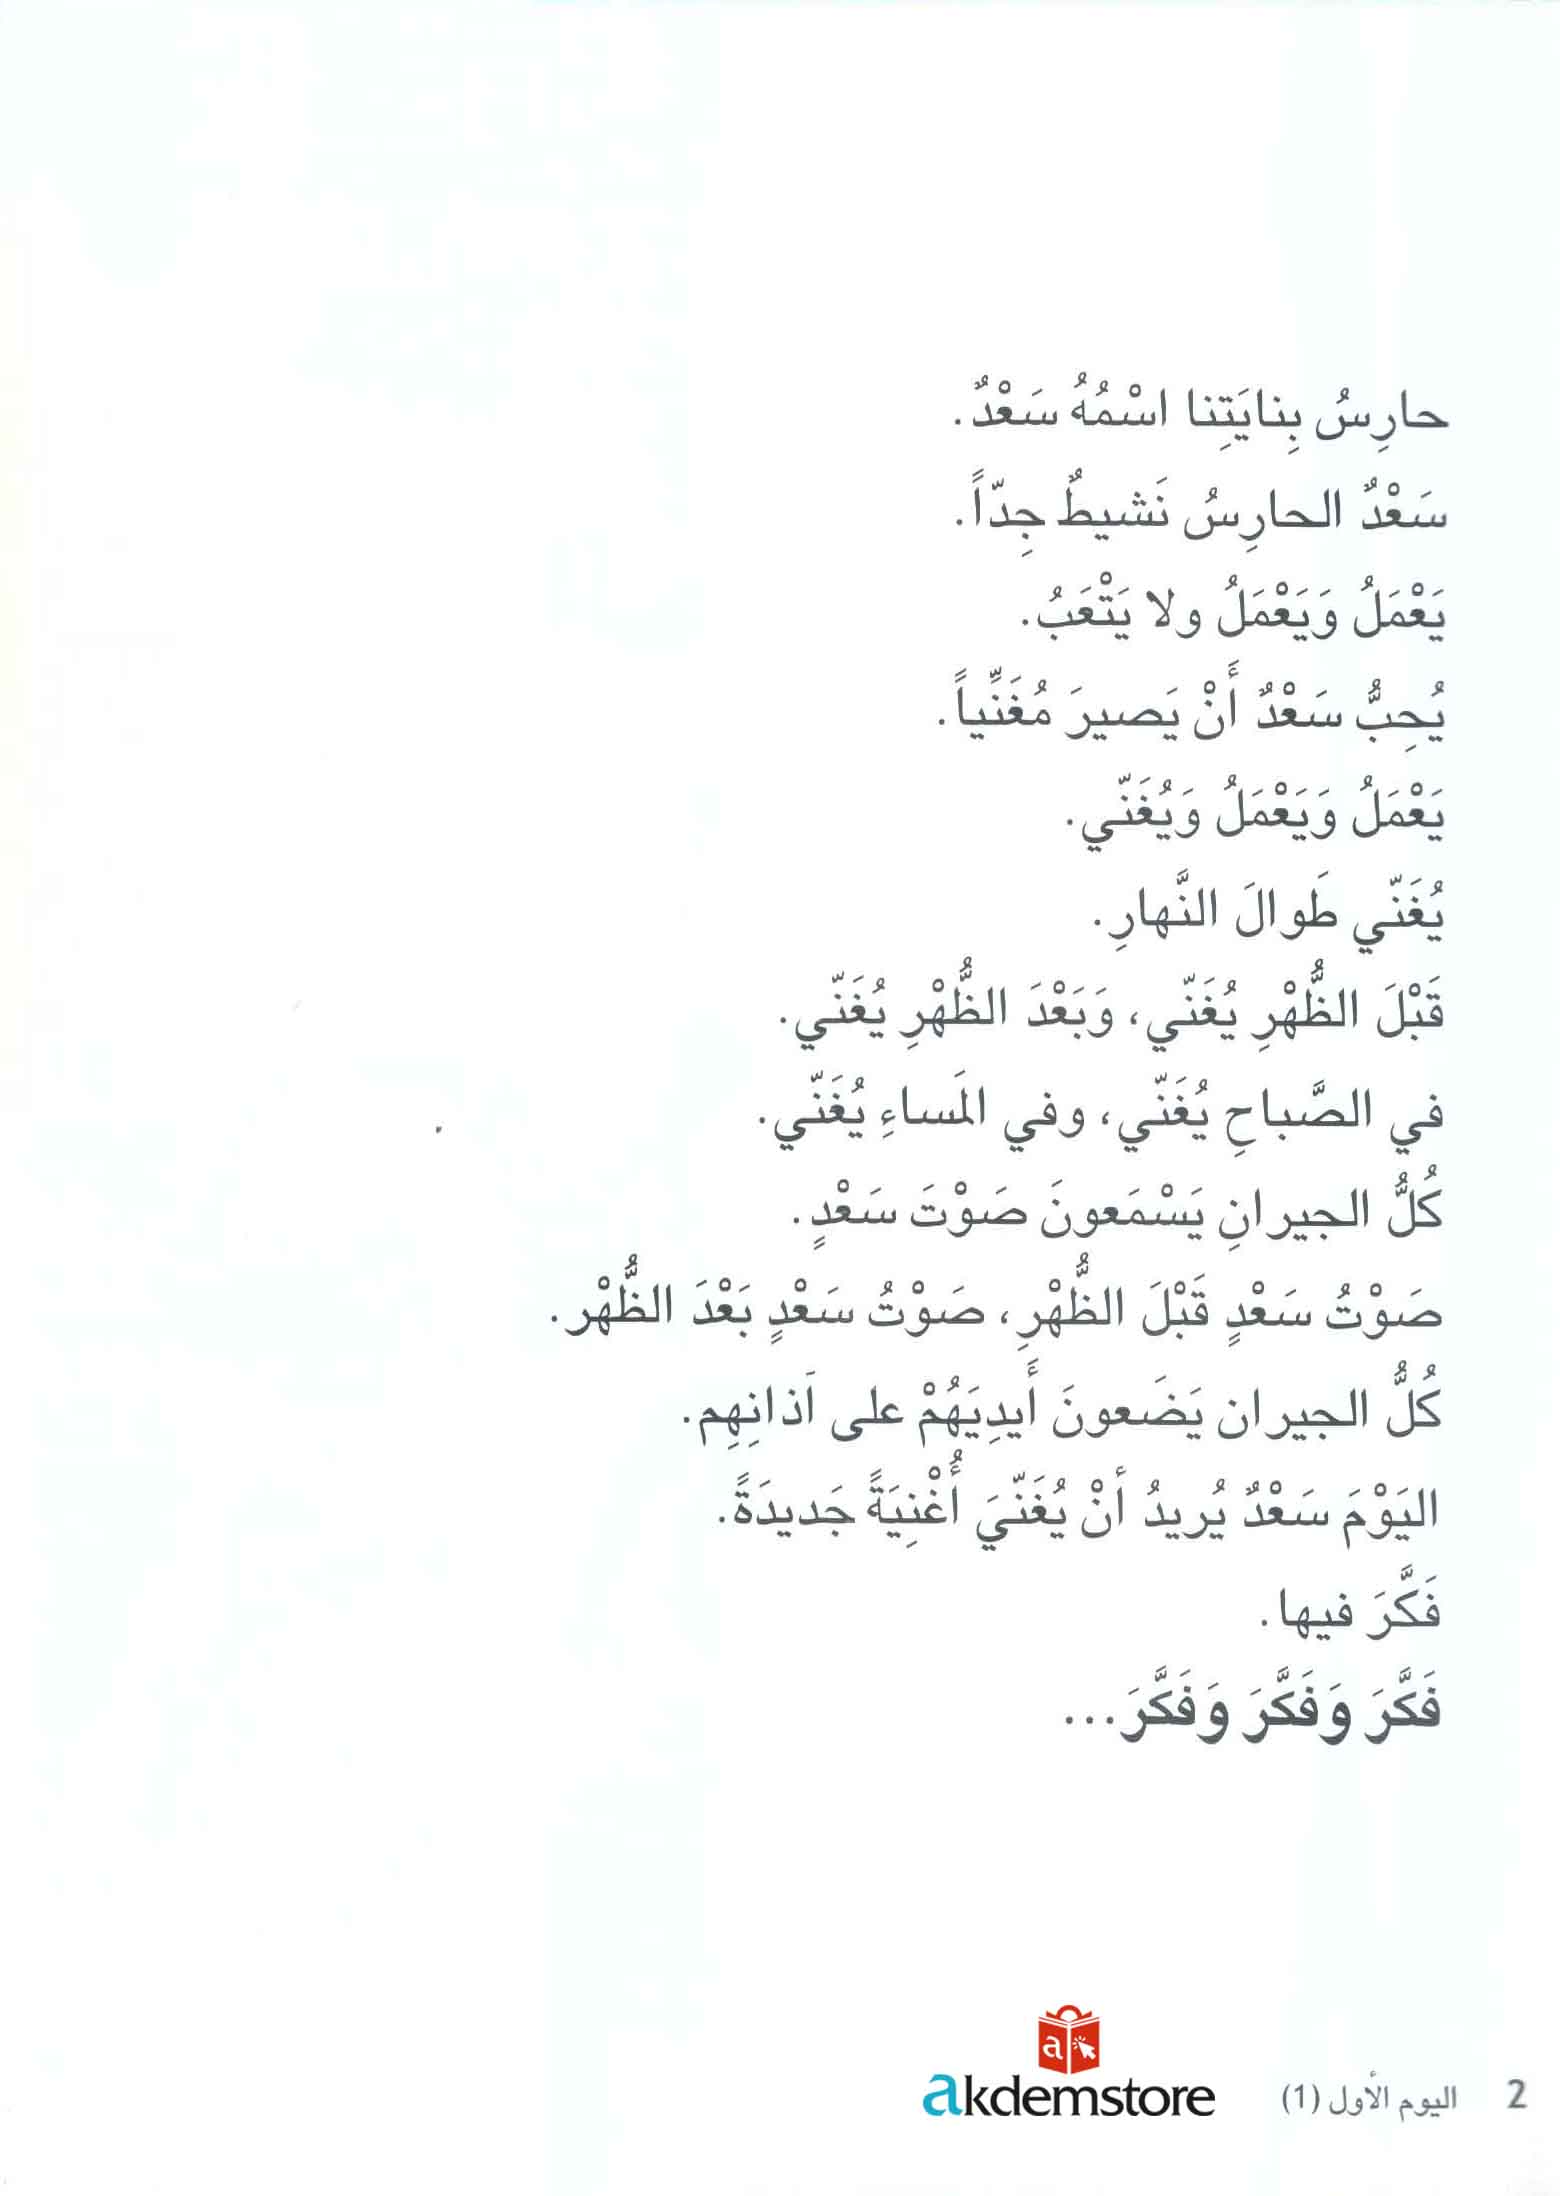 حارِسُ بِنايَتِنا اسْمُهُ سَعْدٌ.
سَعْدٌ الحارِسُ نَشيطٌ جِدّاً.
يَعْمَلُ وَيَعْمَلُ ولا يَتْعَبُ.
يُحِبُّ سَعْدٌ أَنْ يَصيرَ مُغَنِّياً.
يَعْمَلُ وَيَعْمَلُ وَيُغَنّي.
يُغَنّي طَوالَ النَّهارِ.
قَبْلَ الظُّهْرِ يُغَنّي، وَبَعْدَ الظُّهْرِ يُغَنّي.
في الصَّباحِ يُغَنّي، وفي المَساءِ يُغَنّي.
كُلُّ الجيرانِ يَسْمَعونَ صَوْتَ سَعْدٍ.
صَوْتُ سَعْدٍ قَبْلَ الظُّهْرِ، صَوْتُ سَعْدٍ بَعْدَ الظُّهْر.
كُلُّ الجيران يَضَعونَ أَيدِيَهُمْ على آذانِهِم.
اليَوْمَ سَعْدٌ يُريدُ أنْ يُغَنّيَ أُغْنِيَةً جَديدَةً.
فَكَّرَ فيها.
فَكَّرَ وَفَكَّرَ وَفَكَّرَ...
a
akdemstore
2 اليوم الأول (1)